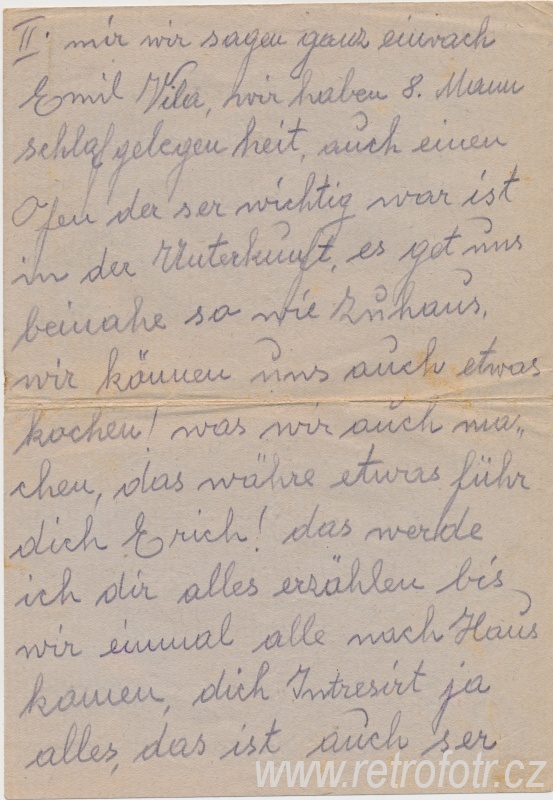 II. mir wir sagen ganz einvach
Emil Vila, wir haben 8. Mann
schlafgelegenheit, auch einen
Ofen der ser wichtig war ist
in der Unterkunft, es get uns
beinahe so wie Zuhaus,
wir können uns auch etwas
kochen! was wir auch ma„
chen, das währe etwas führ
dich Erich! das werde
ich dir alles erzählen bis
wir einmal alle nach Haus
komen, dich Intresirt ja
alles, das ist auch ser
www.retrofotr.cz